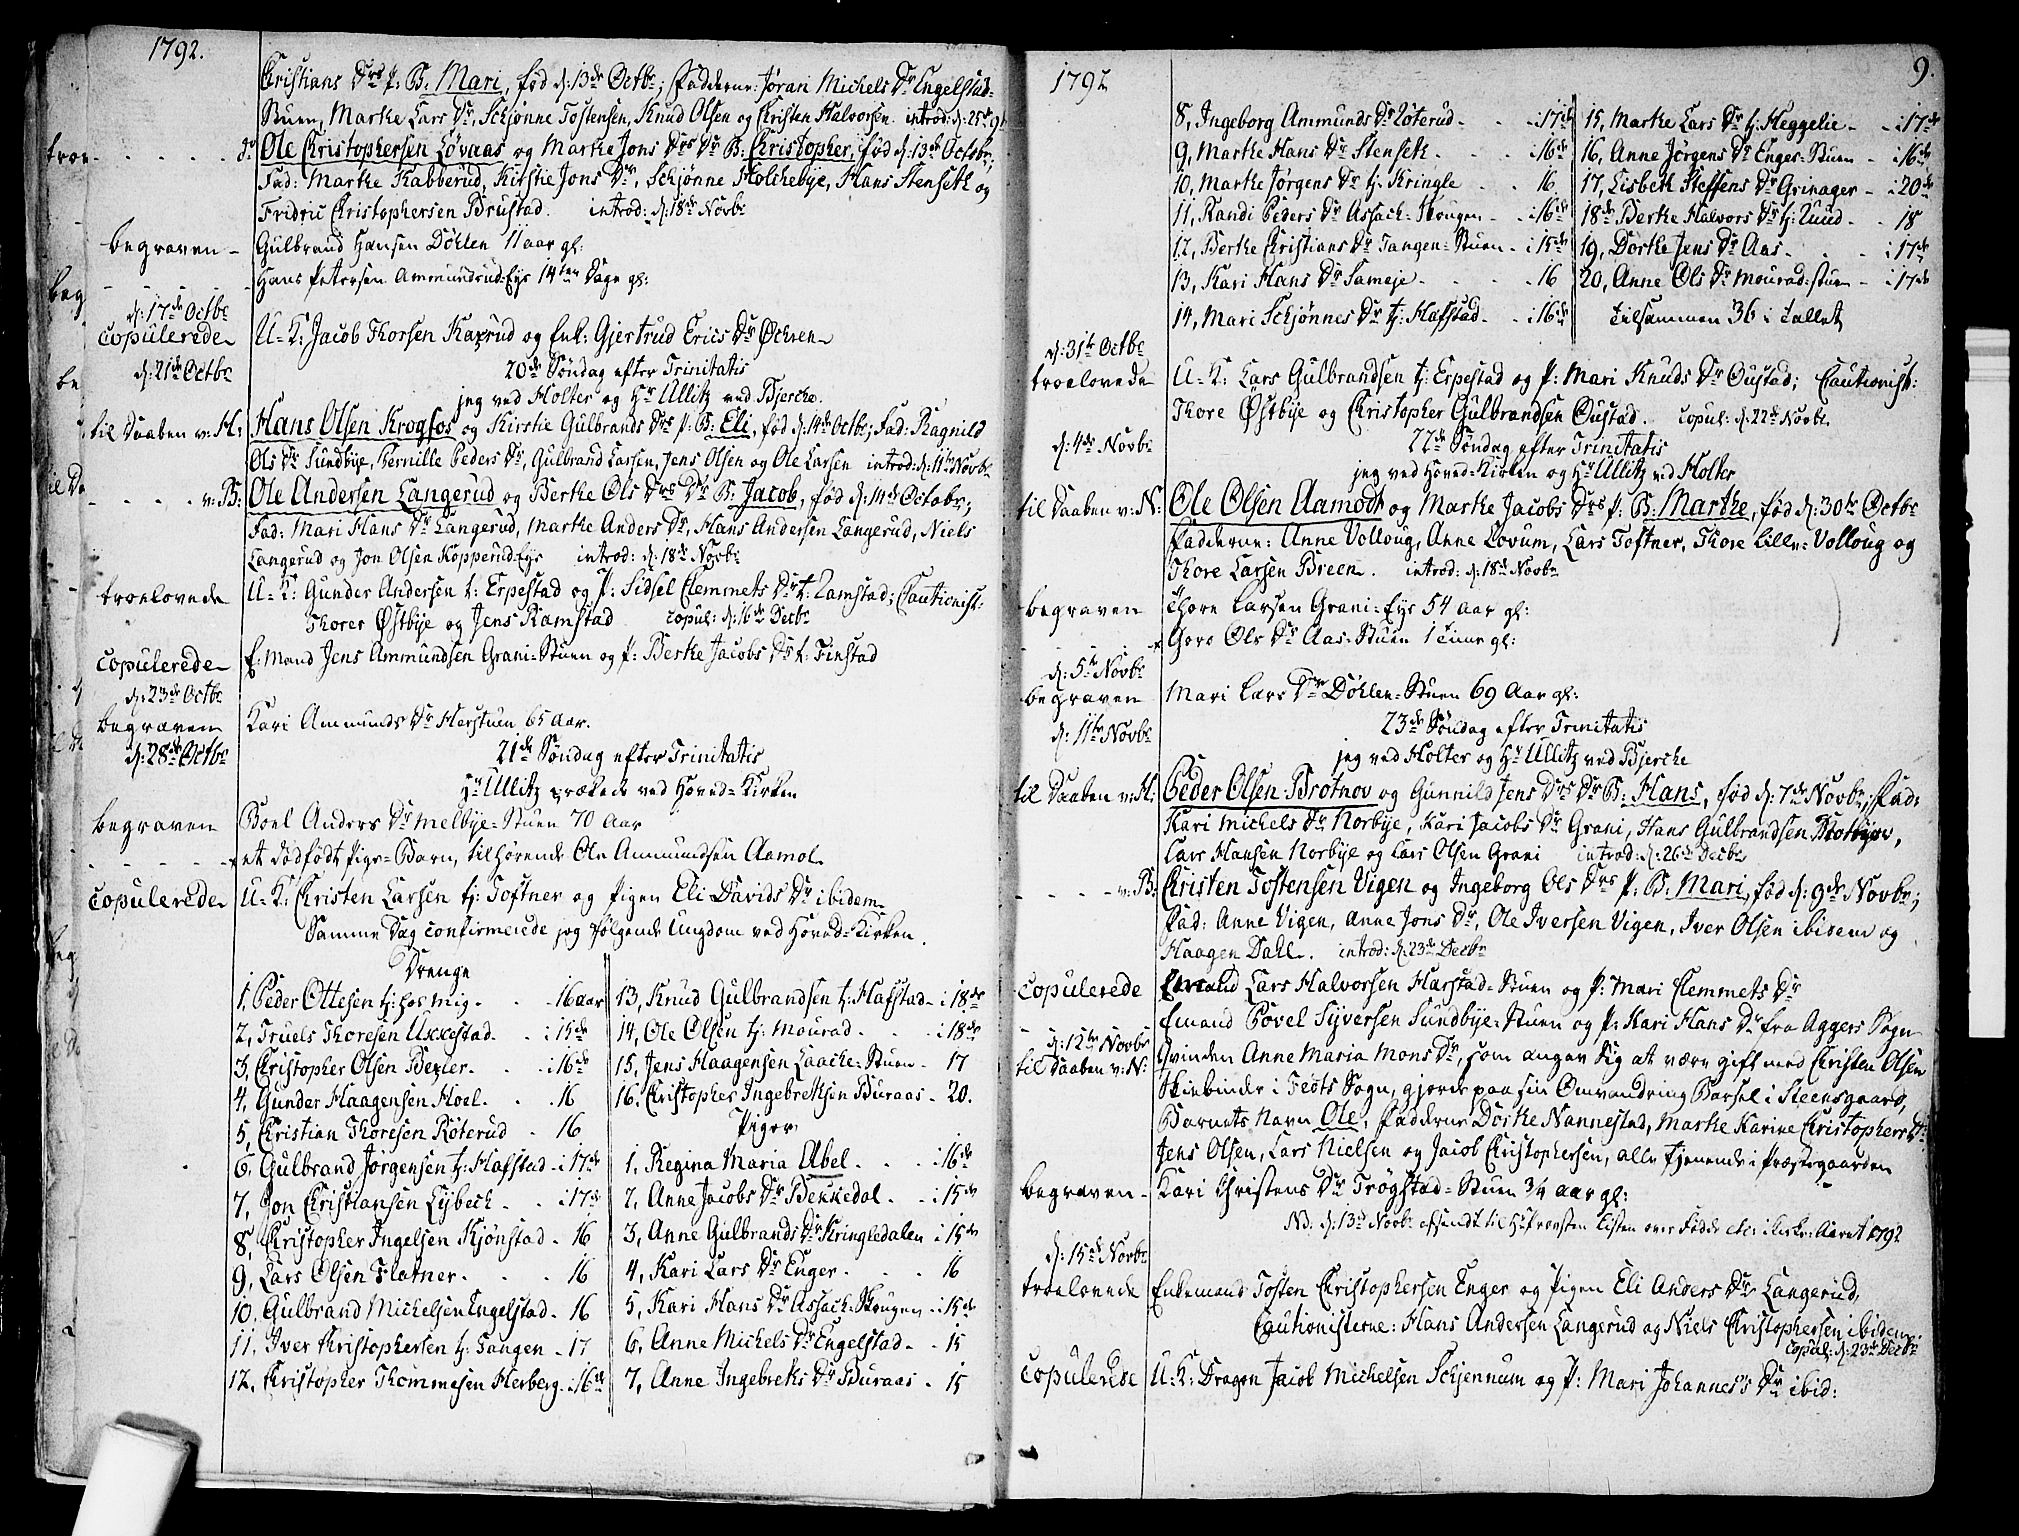 1792.
Christians Drs P: B: Mari, fød d: 13de Octbr; Fadderne: Joran Michels Dr Engelstad-
Stuen, Marthe Lars Dr, Schjønne Tostensen, Knud Olsen og Christen Halvorsen. introd: d: 25de 9br
Ole Christophersen Løvaas og Marthe Jons Drs Dr B: Christopher, fød d: 13de Octobr;
Fad: Marthe Kabberud, Kirstie Jons Dr, Schjønne Holchebye, Hans Stenseth og
Fridric Christophersen Brustad. introd: d: 18de Novbr
begraven - Gulbrand Hansen Døhlen 11 aar gl:
Hans Petersen Ammundrud-Eye 14ten Dage gl:
d: 17de Octbr
copulerede U-K: Jacob Thorsen Kaxrud og Enk: Gjertrud Erics Dr Øchren
d: 21de Octbr 20de Søndag efter Trinitatis
jeg ved Holter og Hr Ullitz ved Bjercke.
til Daaben v: H: Hans Olsen Krogfos og Kirstie Gulbrands Drs P: B: Eli, fød d: 14de Octbr; Fad: Ragnild
Ols Dr Sundbye, Pernille Peders Dr, Gulbrand Larsen, Jens Olsen og Ole Larsen introd: d: 11te Novbr
v: B: Ole Andersen Langerud og Berthe Ols Drs Dr B: Jacob, fød d: 14de Octobr;
Fad: Mari Hans Dr Langerud, Marthe Anders Dr, Hans Andersen Langerud, Niels
Langerud og Jon Olsen Kopperud-Eye introd: d: 18de Novbr
troelovede U-K: Gunder Andersen t: Erpestad og P: Sidsel Clemmets Dr t: Ramstad; Cautionist:
Thorer Østbye og Jens Ramstad copul: d: 16de Decbr
copulerede E: Mand Jens Ammundsen Grani-Stuen og P: Berthe Jacobs Dr t: Finstad
d: 23de Octbr
begraven Kari Ammunds Dr Herstuen 65 Aar.
d: 28de Octbr 21de Søndag efter Trinitatis
Hr Ullitz prækede ved Hoved-Kirken
begraven Boel Anders Dr Melbye-Stuen 70 Aar
et dødfødt Pige-Barn, tilhørende Ole Ammundsen Aamol
copulerede U-K: Christen Larsen tj: Toftner og Pigen Eli Davids Dr ibidem
Samme Dag confirmerede jeg følgende Ungdom ved Hoved-Kirken.
Drenge
1, Peder Ottesen tj: hos mig. - 16 aar
2, Truels Thoresen Ukkestad. - i 15de
3, Christopher Olsen Bexler. - i 16de
4, Gunder Haagensen Hoel. - 16
5, Christian Thoresen Røterud - 16
6, Gulbrand Jørgensen tj: Hafstad - i 17de
7, Jon Christiansen Lybech - i 17de
8, Christopher Ingelsen Kjønstad - 16
9, Lars Olsen Flatner - 16
10, Gulbrand Michelsen Engelstad - 16
11, Iver Christophersen tj: Tangen - 17
12, Christopher Thommesen Herberg - i 16de
13, Knud Gulbrandsen tj: Hafstad - i 18de
14, Ole Olsen tj: Mourad - i 18de
15, Jens Haagensen Laache-Stuen - 17
16, Christopher Ingebrethsen Buraas - 20.
Piger
1, Regina Maria Abel - i 16de
2, Anne Jacobs Dr Bekkedal - i 15de
3, Anne Gulbrands Dr Kringledalen i 15de
4, Kari Lars Dr Enger - 16
5, Kari Hans Dr Assach-Skougen - i 15de
6, Anne Michels Dr Engelstad - 15
7, Anne Ingebreths Dr Buraas - 15
1792 9.
8, Ingeborg Ammunds Dr Røterud - i 17de
9, Marthe Hans Dr Stenseth - i 16de
10, Marthe Jørgens Dr tj: Kringle - 16
11, Randi Peders Dr Assach-Skougen - i 16de
12, Berthe Christians Dr Tangen-Stuen - i 15de
13, Kari Hans Dr Sameje - 16
14, Mari Schjønnes Dr tj: Hafstad - i 16de
15, Marthe Lars Dr tj: Heggelie - i 17de
16, Anne Jørgens Dr Enges-Stuen - i 16de
17, Lisbeth Steffens Dr Grinager - i 20de
18de Berthe Halvors Dr tj: Ruud - 18
19, Dorthe Jens Dr Aas - i 17de
20, Anne Ols Dr Mourad-Stuen - i 17de
Tilsammen 36 i Tallet
d: 31te Octbr
troelovede U-K: Lars Gulbrandsen tj: Erpestad og P: Mari Knuds Dr Oustad; Cautionist:
Thore Østbye og Christopher Gulbrandsen Oustad. copul: d: 22de Novbr
d: 4de Novbr 22de Søndag efter Trinitatis
jeg ved Hoved-Kirken og Hr Ullitz ved Holter
til Daaben v: N: Ole Olsen Aamodt og Marthe Jacobs Drs P: B: Marthe, fød d: 30te Octbr
Fadderne: Anne Volloug, Anne Lovum, Lars Toftner, Thore Lille-Volloug og
Thore Larsen Breen. introd: d: 18de Novbr
begraven Thore Larsen Grani-Eye 54 Aar gl:
Goro Ols Dr Aas-Stuen 1 Time gl:
d: 5te Novbr
begraven Mari Lars Dr Døhlen-Stuen 69 Aar gl:
d: 11te Novbr 23de Søndag efter Trinitatis
jeg ved Holter og Hr Ullitz ved Bjercke
til Daaben v: H: Peder Olsen Brotnov og Gunnild Jens Drs Dr B: Hans, fød d: 7de Novbr; Fad:
Kari Michels Dr Norbye, Kari Jacobs Dr Grani, Hans Gulbrandsen
Lars Hansen Norbye og Lars Olsen Grani introd: d: 26de Decbr
v: B: Christen Tostensen Vigen og Ingeborg Ols Drs P: B: Mari, fød d: 9de Novbr;
Fad: Anne Vigen, Anne Jons Dr, Ole Iversen Vigen, Iver Olsen ibidem og
Haagen Dahl. introd: d: 23de Decbr
copulerede Emand Lars Halvorsen Harstad-Stuen og P: Mari Clemmets Dr
Emand Povel Syversen Sundbye-Stuen og P: Kari Hans Dr fra Aggers Sogn
d: 12te Novbr
til Daaben v: N: Qvinden Anne Maria Mons Dr, som angav sig at være gift med Christen Olsen
Skinbinder i Feöts Sogn, gjorde paa sin Omvandring Barsel i Steensgaard,
Barnets Navn Ole, Fadderne Dorthe Nannestad, Marthe Karine Christophers Dr
Jens Olsen, Lars Nielsen og Jacob Christophersen, alle tjenende i Præstegaarden
begraven - Kari Christens Dr Trøgstad-Stuen 3/4 Aar gl:
NB: d: 13de Novbr afsendt til Hr Provsten Listen over Fødde etc: i Kirke-Aaret 1792
d: 15de Novbr
troelovede Enkemand Tosten Christophersen Enger og Pigen Eli Anders Dr Langerud,
Cautionisterne: Hans Andersen Langerud og Niels Christophersen ibidem.
copul: d: 23de Decbr
copulerede U-K: Dragon Jacob Michelsen Schjennum og P: Mari Johannes's Dr ibid: